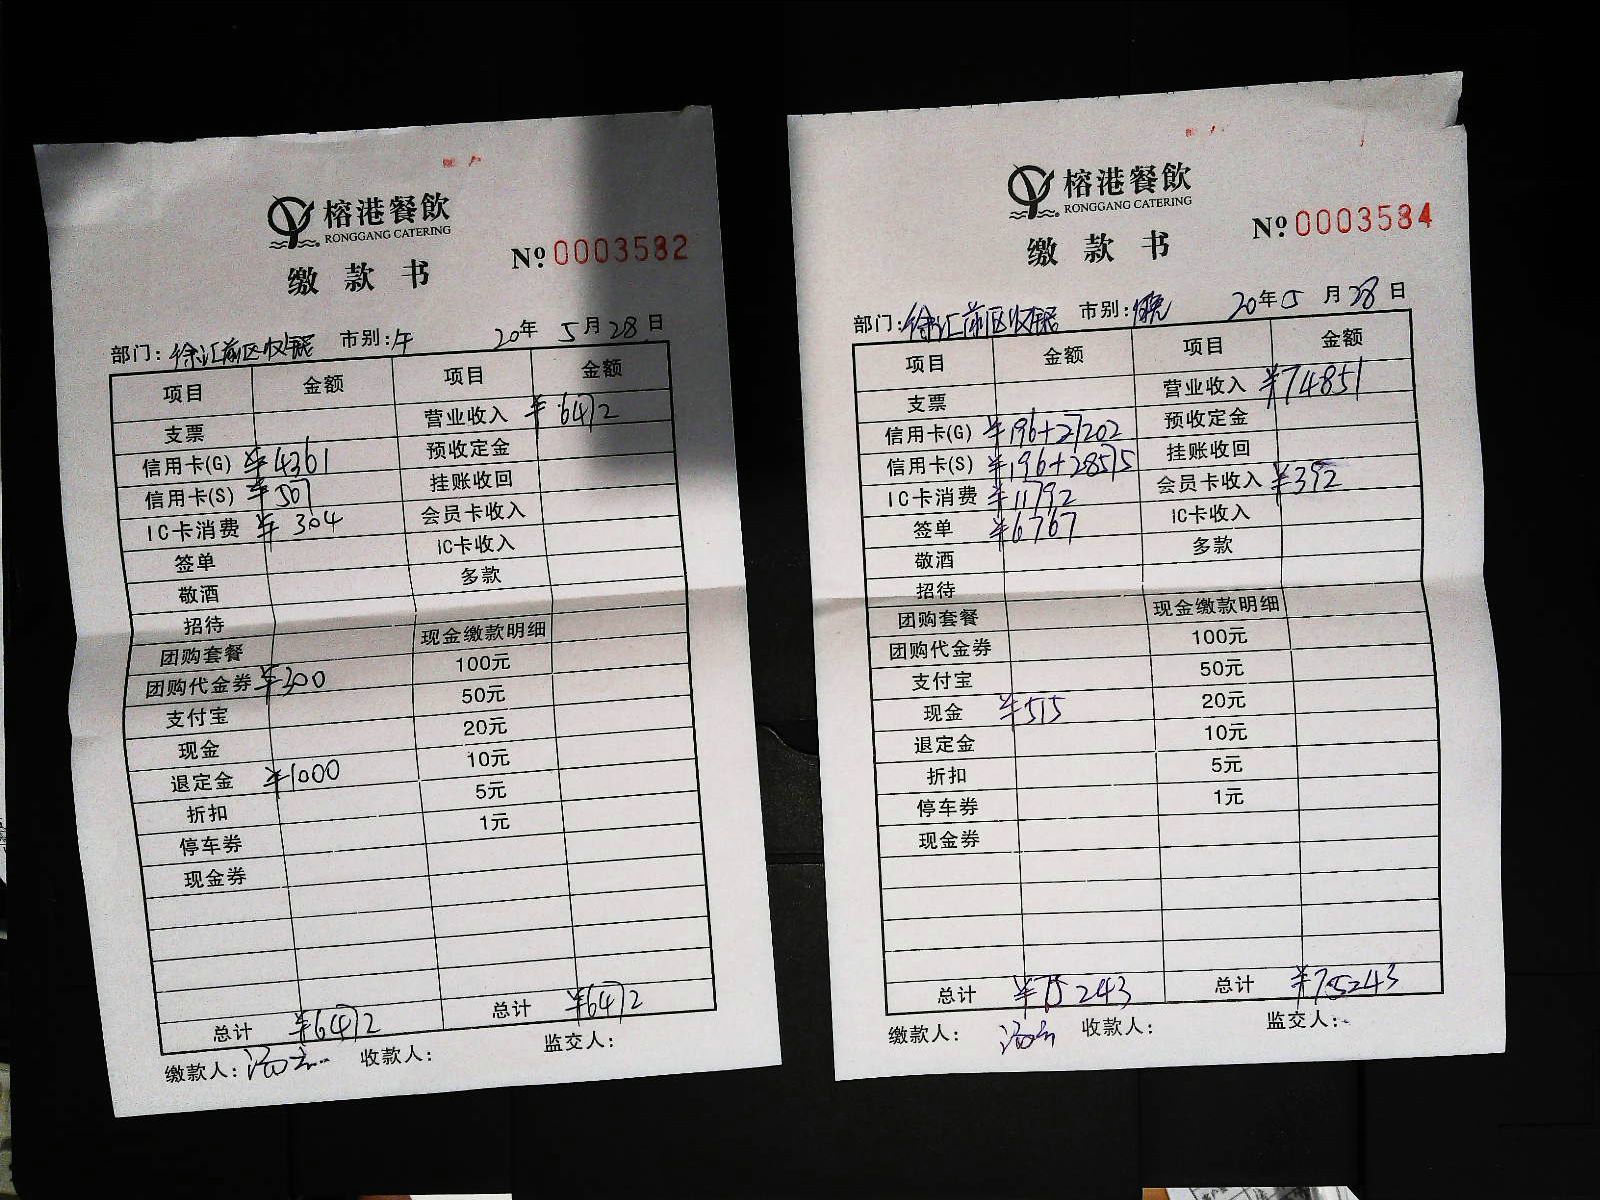 榕港餐飲
RONGGANG CATERING
缴款书
№ 0003582
部门: 徐汇前区收银 市别: 午 20年 5月28日
项目 金额 项目 金额
支票 营业收入 ¥6472
信用卡(G) ¥4361 预收定金
信用卡(S) ¥507 挂账收回
IC卡消费 ¥304 会员卡收入
签单 IC卡收入
敬酒 多款
招待
团购套餐 现金缴款明细
团购代金券 ¥300 100元
支付宝 50元
现金 20元
退定金 ¥1000 10元
折扣 5元
停车券 1元
现金券
总计 ¥6472 总计 ¥6472
缴款人: 收款人: 监交人:
榕港餐飲
RONGGANG CATERING
缴款书
№ 0003584
部门: 徐汇前区收银 市别: 晚 20年5月28日
项目 金额 项目 金额
支票 营业收入 ¥74851
信用卡(G) ¥196+27202 预收定金
信用卡(S) ¥196+28575 挂账收回
IC卡消费 ¥11792 会员卡收入 ¥392
签单 ¥6767 IC卡收入
敬酒 多款
招待
团购套餐 现金缴款明细
团购代金券 100元
支付宝 50元
现金 ¥515 20元
退定金 10元
折扣 5元
停车券 1元
现金券
总计 ¥75243 总计 ¥75243
缴款人: 收款人: 监交人: